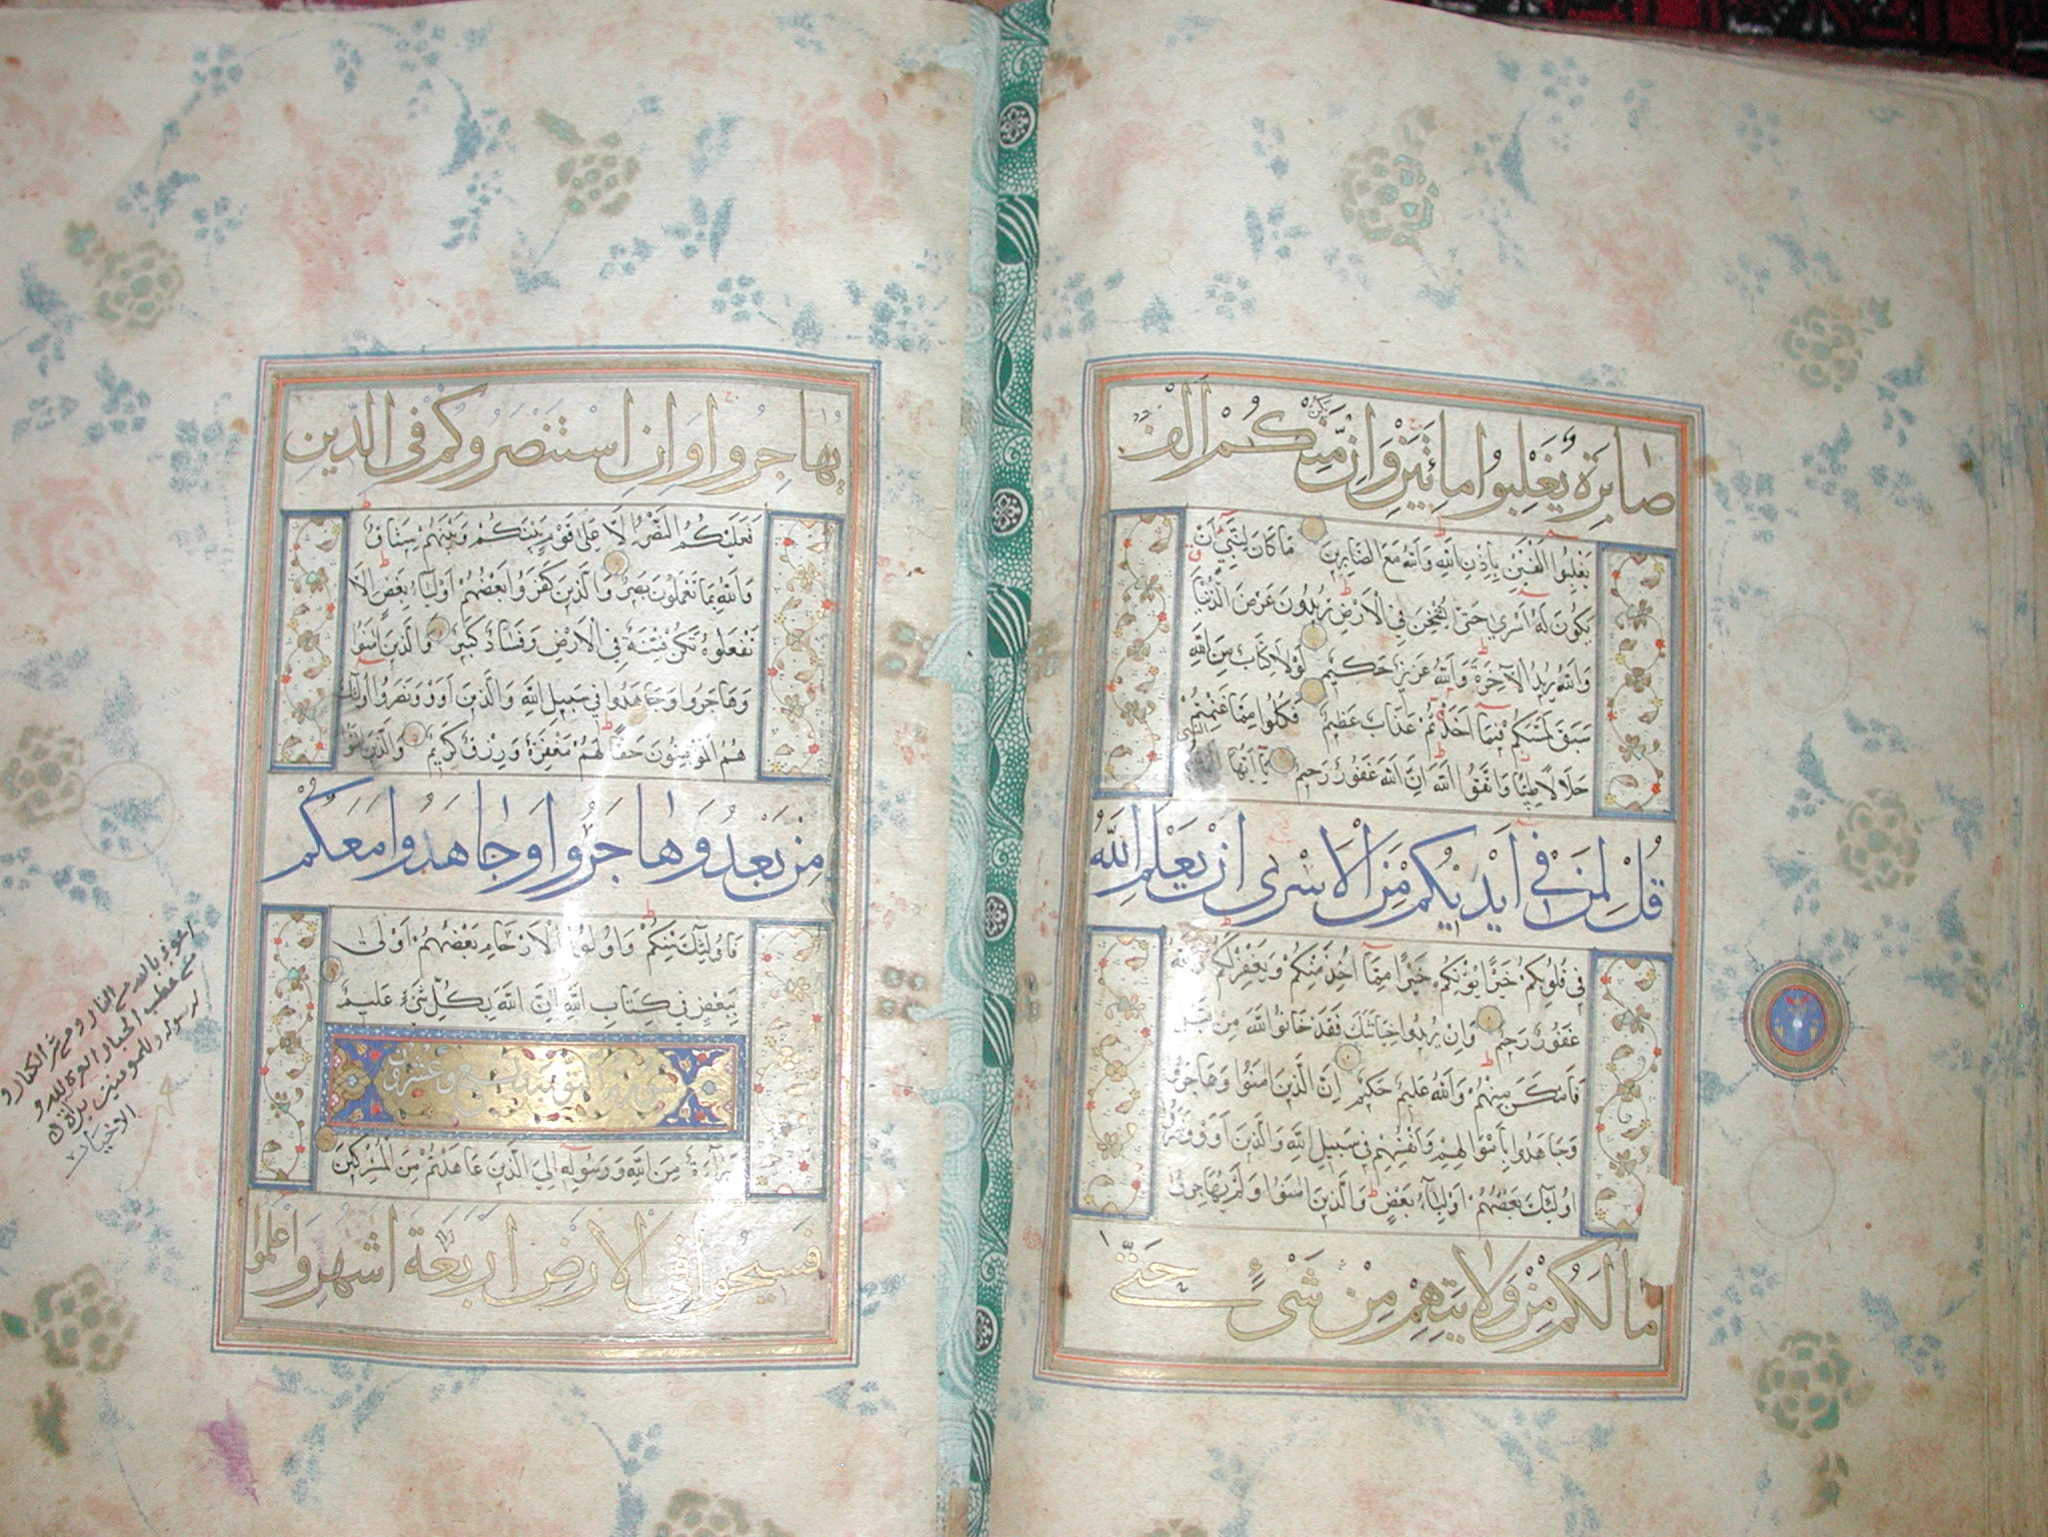 صابرة يغلبوا مائتين وان يكن منكم الف
يغلبوا الفين باذن الله والله مع الصابرين ما كان لنبي ان
يكون له اسرى حتى يثخن في الارض تريدون عرض الدنيا
والله يريد الآخرة والله عزيز حكيم لولا كتاب من الله
سبق لمسكم فيما اخذتم عذاب عظيم فكلوا مما غنمتم
حلالا طيبا واتقوا الله ان الله غفور رحيم يا ايها النبي
قل لمن في ايديكم من الاسرى ان يعلم الله
في قلوبكم خيرا يؤتكم خيرا مما اخذ منكم ويغفر لكم والله
غفور رحيم وان يريدوا خيانتك فقد خانوا الله من قبل
فامكن منهم والله عليم حكيم ان الذين امنوا وهاجروا
وجاهدوا باموالهم وانفسهم في سبيل الله والذين آووا ونصروا
اولئك بعضهم اولياء بعض والذين امنوا ولم يهاجروا
ما لكم من ولايتهم من شيء حتى
يهاجروا وان استنصروكم في الدين
فعليكم النصر الا على قوم بينكم وبينهم ميثاق
والله بما تعملون بصير والذين كفروا بعضهم اولياء بعض الا
تفعلوه تكن فتنة في الارض وفساد كبير والذين امنوا
وهاجروا وجاهدوا في سبيل الله والذين آووا ونصروا اولئك
هم المؤمنون حقا لهم مغفرة ورزق كريم والذين امنوا
من بعد وهاجروا وجاهدوا معكم
فاولئك منكم واولوا الارحام بعضهم اولى
ببعض في كتاب الله ان الله بكل شيء عليم
براءة من الله ورسوله الى الذين عاهدتم من المشركين
فسيحوا في الارض اربعة اشهر واعلموا
اعوذ بالله من النار ومن شر الكفار و
من غضب الجبار العزة لله و
لرسوله وللمومنين